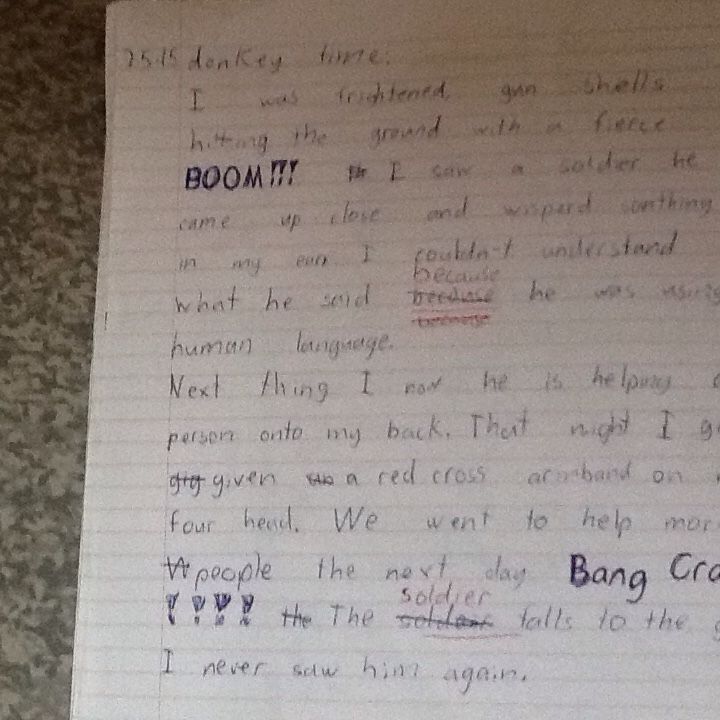 25.15 donkey time:
I was frightened, gun shells
hitting the ground with a fierce
BOOM!!! I saw a soldier he
came up close and wisperd somthing
in my ear I couldn't understand
because
what he said because he was using
because
human language.
Next thing I now he is helping
person onto my back. That night I g
given a red cross armband on
four head. We went to help mor
people the next day Bang Cra
soldier
!!!! the The falls to the g
I never saw him again.